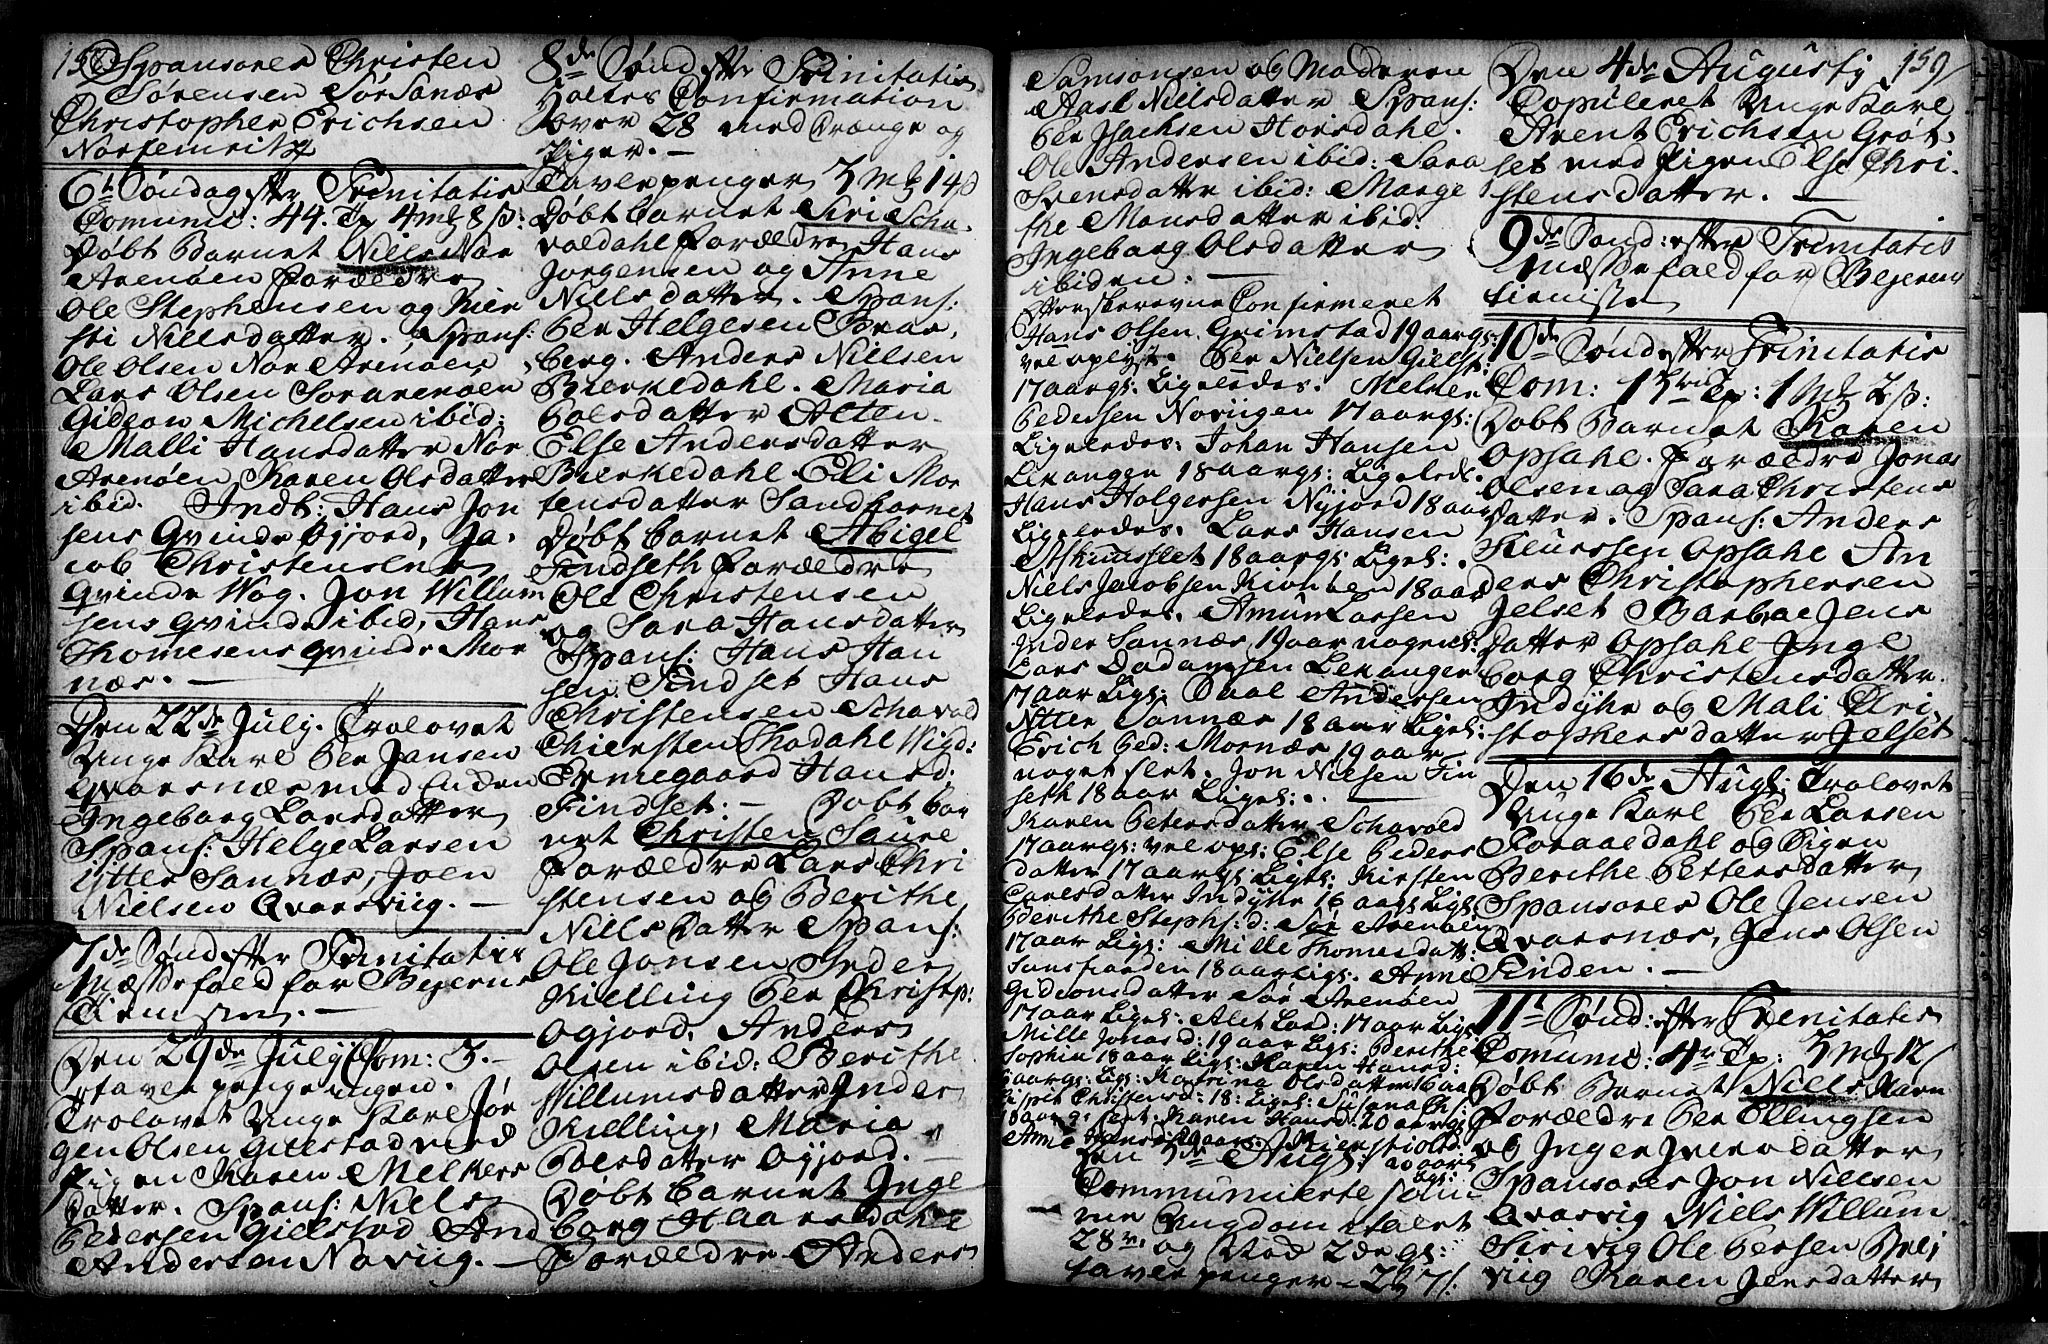 158
Sponsores Christen
Sørensen Sør Sanæs
Christopher Erichsen
6t Søndag efter Trinitatis
Comunic: 44. Tp 4 mk 8 s:
Døbt Barnet Niels Nor
Arenøen Forældre
Ole Stephensen og Kier
sti Nielsdatter. Spons:
Ole Olsen Nor Arenøen,
Lars Olsen Sør Arenøen
Gideon Michelsen ibid:
Malli Hansdatter Nor
Arenøen Karen Olsdatter
ibid. Indt: Hans Jon
sens Qvinde Ogjord, Ja-
cob Christensens
Qvinde Wog. Jon Willum
sens Qvinde ibid, Hans
Thomesens Qvinde Mor
næs. —
Den 22de July. Trolovet
Unge Karl Per Jansen
Qvarsnæs med Enchen
Ingeborg Larsdatter
Spons: Helge Larsen
Ytter Sannæs, Joen
Nielsen Qvarsviig. —
7de Sønd efter Trinitatis
Mæssefald for Bejerns
Den 29de July Com: 3. —
Tavle penge ingen.
Trolovet Unge Karl Jør
gen Olsen Gillestad med
Pigen Karen Melkers
Datter. Spons: Niels
Pedersen Gielstad And
Andersen Noviig. —
8de Sønd efter Trinitatis
Holtes Confirmation
over 28 med Drænge og
Piger. —
Tavle penger 3 mk 14 s
Døbt Barnet Siri Scha-
voldahl Forældre Hans
Jørgensen og Anne
Nielsdatter. Spons:
Per Helgesen Brae,
berg. Anders Nielsen
Bierkedahl. Maria
Poelsdatter Alten.
Else Andersdatter
Bierkedahl Eli Mor
tensdatter Sandhornet
Døbt Barnet Abigel
Findseth Forældre
Ole Christensen
og Sara Hansdatter
Spons: Hans Han
sen Findset Hans
Christensen Schavold
Chiersten Thodahl Wigd:
Ermegaard Hansd.
Findset. — Døbt Bar
net Christen Saure
Forældre Lars Chri
stensen og Berithe
Niels Datter Spons:
Ole Jonsen Inder
Kielling Per Christp:
Ogjord, Anders
Olsen ibid: Berithe
Willumsdatter Inder
Kielling, Maria
Poelsdatter Ogjord. —
Døbt Barnet Inge
borg Haarsdahl
Forældre Anders
Samsonsen og Moderen
Aasl Nielsdatter Spons:
Per Jsachsen Horsdahl.
Ole Andersen ibid: Sara
Svensdatter ibid: Marge
the Monsdatter ibid:
Ingeborg Olsdatter
ibiden. —
Efterskrevne Confirmeret
Hans Olsen Grimstad 19 aargs:
vel oplyst. Per Nielsen Gielst:
17 aargs: Ligeleedes. Melker
Pedersen Noviigen 17 aargs:
Ligeledes: Johan Hansen
Lekangen 18 aargs: Ligeleds.
Hans Holgersen Nyjord 18 aar
Ligeledes. Lars Hansen
18 aargs: Ligel:
Niels Jacobsen 18 aar
Ligeledes. Amun Larsen
Inder Sannæs 19 aar nogen
Lars Dadamsen Lekangen
17 aar Ligs: Paal Andersen
Ytter Sannæs 18 aar Ligel:
Erich Ped: Mornæs 19 aar
noget slet. Jon Nielsen Fin
seth 18 aar Ligel:. —
Karen Petersdatter Schavold
17 aargs: vel ops: Else Peders
datter 17 aargs Ligel: Kirsten
Carlsdatter Indyhr 16 aars Ligs:
Berithe Stephs:d: Sør Arenøen
17 aar Ligs: Mille Thomesdatt:
18 aar Ligs: Anne
Gideonsdatter Sør Arenøen
17 aar Ligel: Alet Larsd: 17 aar Ligs
Mille Jonasd: 19 aar Ligs: Berithe
Sophia 18 aar Ligs: Karen Hansd:
aargs: Ligs: Olsdatter 16 aar
Christensd: 18: Ligel: Susana
18 aargs slet. Karen Hansd: 20 aargs
Anne Hansd 19 aar: 20 aars
Den 3de Augs:
Communicerte som
me Ungdom
28 og
Tavle penger — 2 mk 7 s:
159
Den 4de Augusty
Copuleret Unge Karl
Arent Erichsen Grøt-
set med Pigen Else Chri-
stensdatter. —
9de Sønd: efter Trinitatis
Mæssefald for Bejerens
10de Sønd efter Trinitatis
Com: 1 mk 2 s:
Døbt Barnet Karen
Opsahl. Forældre Jonas
Olsen og Sara Christens
Datter. Spons: Anders
Opsahl An
ders Christophersen
Jelset Barbae Jens
Datter Opsahl Inge
borg Christensdatter
Indyhr og Mali Chri
stophersdatter Jelset
Den 16de Augs: Trolovet
Unge Karl Per Larsen
og Pigen
Berithe Pettersdatter
Sponsores Ole Jensen
Qvarsnæs, Jens Olsen
Finden. —
11te Sønd: efter Trenitatis
Comunic: 4 Tp: 3 mk 12
Døbt Barnet Niels
Forældre Per Ellingsen
og Inger Iversdatter
Sponsores Jon Nielsen
Qvarsvig Niels Willum
Ole Persen
viig Karen Jensdatter